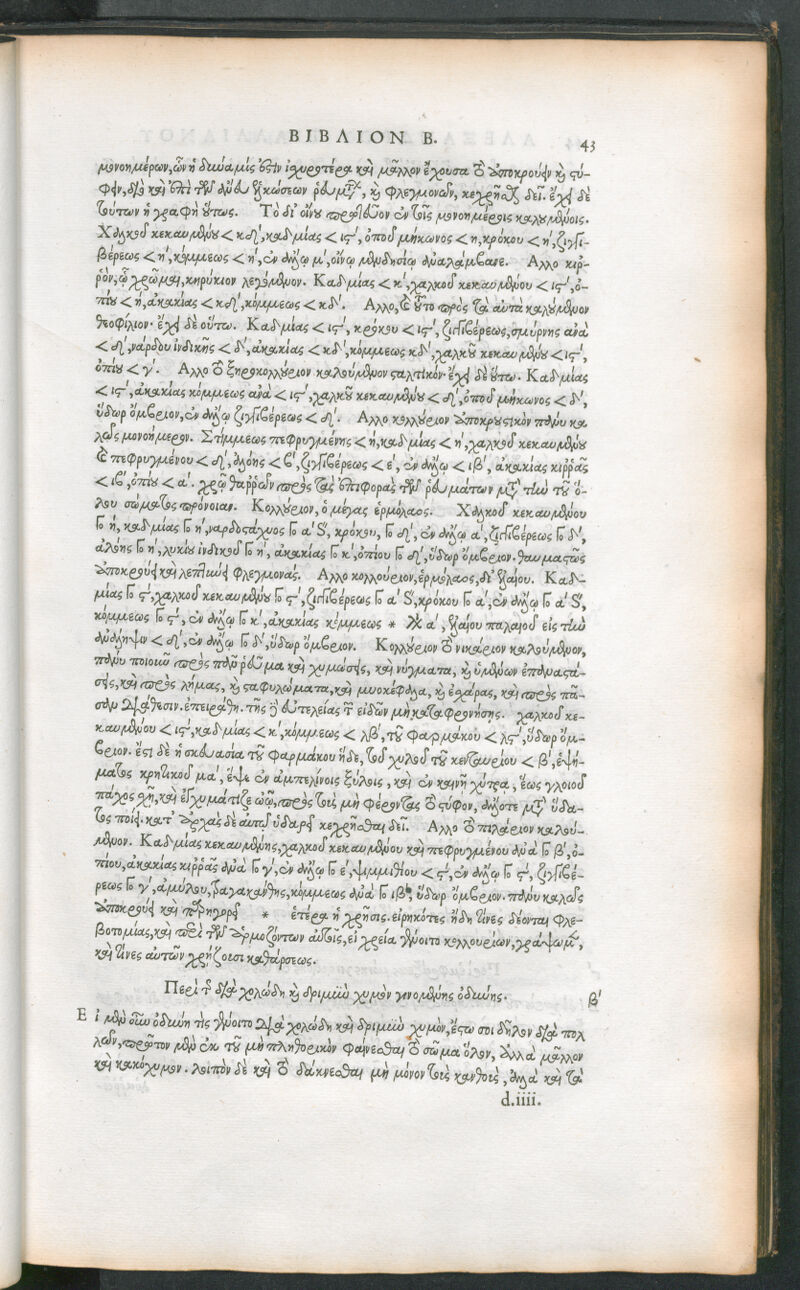 ΒΙΒΛΙΟΝ Β.
43
μονοημέρων, ὧν ἡ δύναμίς ἐστιν ἰσχυροτέρα καὶ μᾶλλον ἔχουσα τὸ ἀποκρούειν καὶ στύ-
φειν, διὸ καὶ ἐπὶ τῶν ἄνευ ἑλκώσεων ῥευμάτων, καὶ φλεγμονῶν, κεχρῆσθαι δεῖ. ἔχει δὲ
τούτων ἡ γραφὴ οὕτως. Τὸ δι' οἴνου προσθετέον ἐν τοῖς μονοημέροις καλουμένοις.
Χαλκοῦ κεκαυμένου < κδ', καδμίας < ις', ὀποῦ μήκωνος < η, κρόκου < η', ζιγγι-
βέρεως < η', κόμμεως < η', ἐν ἄλλῳ μ', οἴνῳ ἀναλάμβανε. Αλλο κιρ-
ρὸν, ᾧ χρῶμαι, κηρύκιον λεγόμενον. Καδμίας < κ', χαλκοῦ κεκαυμένου < ις', ὀ-
πίου < η, ἀκακίας < κδ', κόμμεως < κδ'. Αλλο, καὶ τοῦτο πρὸς τὰ αὐτὰ καλούμενον
θεοφίλιον· ἔχει δὲ οὕτω. Καδμίας < ις', κρόκου < ις', ζιγγιβέρεως, σμύρνης ἀνὰ
< δ', νάρδου ἰνδικῆς < δ', ἀκακίας < κδ', κόμμεως κδ', χαλκοῦ κεκαυμένου < ις',
ὀπίου < γ'. Αλλο τὸ ξηροκολλύριον καλούμενον σταλτικόν· ἔχει δὲ οὕτω. Καδμίας
< ις', ἀκακίας κόμμεως ἀνὰ < ις', χαλκοῦ κεκαυμένου < δ', ὀποῦ μήκωνος < δ',
ὕδωρ ὄμβριον, ἐν ἄλλῳ ζιγγιβέρεως < δ'. Αλλο κολλύριον ἀποκρουστικὸν πάνυ κα
λῶς μονοήμερον. Στίμμεως πεφρυγμένης < ή, καδμίας < η', χαλκοῦ κεκαυμένου
καὶ πεφρυγμένου < δ', ἀλόης < β', ζιγγιβέρεως < ε', ἐν ἄλλῳ < ιβ', ἀκακίας κιρρᾶς
< ιβ', ὀπίου < α'. χρῶ θαρρῶν πρὸς τὰς ἐπιφορὰς τῶν ῥευμάτων μετὰ τὴν τοῦ ὅ-
λου σώματος πρόνοιαν. Κολλύριον, ὁ μέγας ἑρμόλαος. Χαλκοῦ κεκαυμένου
𐅻 η, καδμίας 𐅻 η', ναρδοστάχυος 𐅻 α' S', κρόκου, 𐅻 δ', ἐν ἄλλῳ α', ζιγγιβέρεως 𐅻 δ',
ἀλόης 𐅻 η', λυκίου ἰνδικοῦ 𐅻 η', ἀκακίας 𐅻 κ', ὀπίου 𐅻 δ', ὕδωρ ὄμβριον. θαυμαστῶς
ἀποκρούει καὶ λεπτύνει φλεγμονάς. Αλλο κολλούριον, ἑρμόλαος, δι' ἐλαίου. Καδ-
μίας 𐅻 ς', χαλκοῦ κεκαυμένου 𐅻 ς', ζιγγιβέρεως 𐅻 α' S', κρόκου 𐅻 α', ἐν ἄλλῳ 𐅻 α' S',
κόμμεως 𐅻 ς', ἐν ἄλλῳ 𐅻 κ', ἀκακίας κόμμεως * α', ἐλαίου παλαιοῦ εἰς τὴν
ἀνάληψιν < δ', ἐν ἄλλῳ 𐅻 δ', ὕδωρ ὄμβριον. Κολλύριον τὸ νικάριον καλούμενον,
πάνυ ποιοῦν πρὸς πᾶν ῥεῦμα καὶ χυμώσεις, καὶ νύγματα, καὶ ὑμένων ἐπαναστά-
σεις, καὶ πρὸς λήμας, καὶ σταφυλώματα, καὶ μυοκέφαλα, καὶ ἐσχάρας, καὶ πρὸς πᾶ-
σαν διάθεσιν. ἐπειράθη. τῆς δὲ εὐτελείας τῶν εἰδῶν μὴ καταφρονήσῃς. χαλκοῦ κε-
καυμένου < ις', καδμίας < κ', κόμμεως < λβ', τοῦ φαρμάκου < λς', ὕδωρ ὄμ-
βριον. ἔστι δὲ ἡ σκευασία τοῦ φαρμάκου ἥδε, τοῦ χυλοῦ τοῦ κενταυρίου < β', ἑψή-
ματος κρητικοῦ μα', ἕψε ἐν ἀμπελίνοις ξύλοις, καὶ ἐν καινῇ χύτρᾳ, ἕως γλοιοῦ
πάχος σχῇ, καὶ ἐγχυμάτιζε ὠῷ, πρὸς τοὺς μὴ φέροντας τὸ στύφον, ἄλλοτε μετὰ ὕδα-
τος ποίει. κατ' ἀρχὰς δὲ αὐτῷ ὑδαρεῖ κεχρῆσθαι δεῖ. Αλλο τὸ πιλάριον καλού-
μενον. Καδμίας κεκαυμένης, χαλκοῦ κεκαυμένου καὶ πεφρυγμένου ἀνὰ 𐅻 β', ὀ-
πίου, ἀκακίας κιρρᾶς ἀνὰ 𐅻 γ', ἐν ἄλλῳ 𐅻 ε', ψιμμιθίου < ς', ἐν ἄλλῳ 𐅻 ς', ζιγγιβέ-
ρεως 𐅻 γ', ἀμύλου, τραγακάνθης, κόμμεως ἀνὰ 𐅻 ιβ', ὕδωρ ὄμβριον. πάνυ καλῶς
ἀποκρούει καὶ παρηγορεῖ * ἑτέρα ἡ χρῆσις. εἰρηκότες ἤδη τίνες δέονται φλε-
βοτομίας, καὶ περὶ τῶν ἁρμοζόντων αὐτοῖς, εἰ χρεία γένοιτο κολλουρίων, γράψωμεν,
καὶ τίνες αὐτῶν χρῄζουσι καθάρσεως.
Περὶ τῆς διὰ χολώδη καὶ δριμὺν χυμὸν γινομένης ὀδύνης. β'
Εἰ μὲν οὖν ὀδύνη τις γένοιτο διὰ χολώδη καὶ δριμὺν χυμὸν, ἔστω σοι δῆλον διὰ πολ
λῶν, πρῶτον μὲν ἐκ τοῦ μὴ πληθορικὸν φαίνεσθαι τὸ σῶμα ὅλον, ἀλλὰ μᾶλλον
καὶ κακόχυμον. λοιπὸν δὲ καὶ τὸ δάκνεσθαι μὴ μόνον τοὺς κανθοὺς, ἀλλὰ καὶ τὰ
d.iiii.